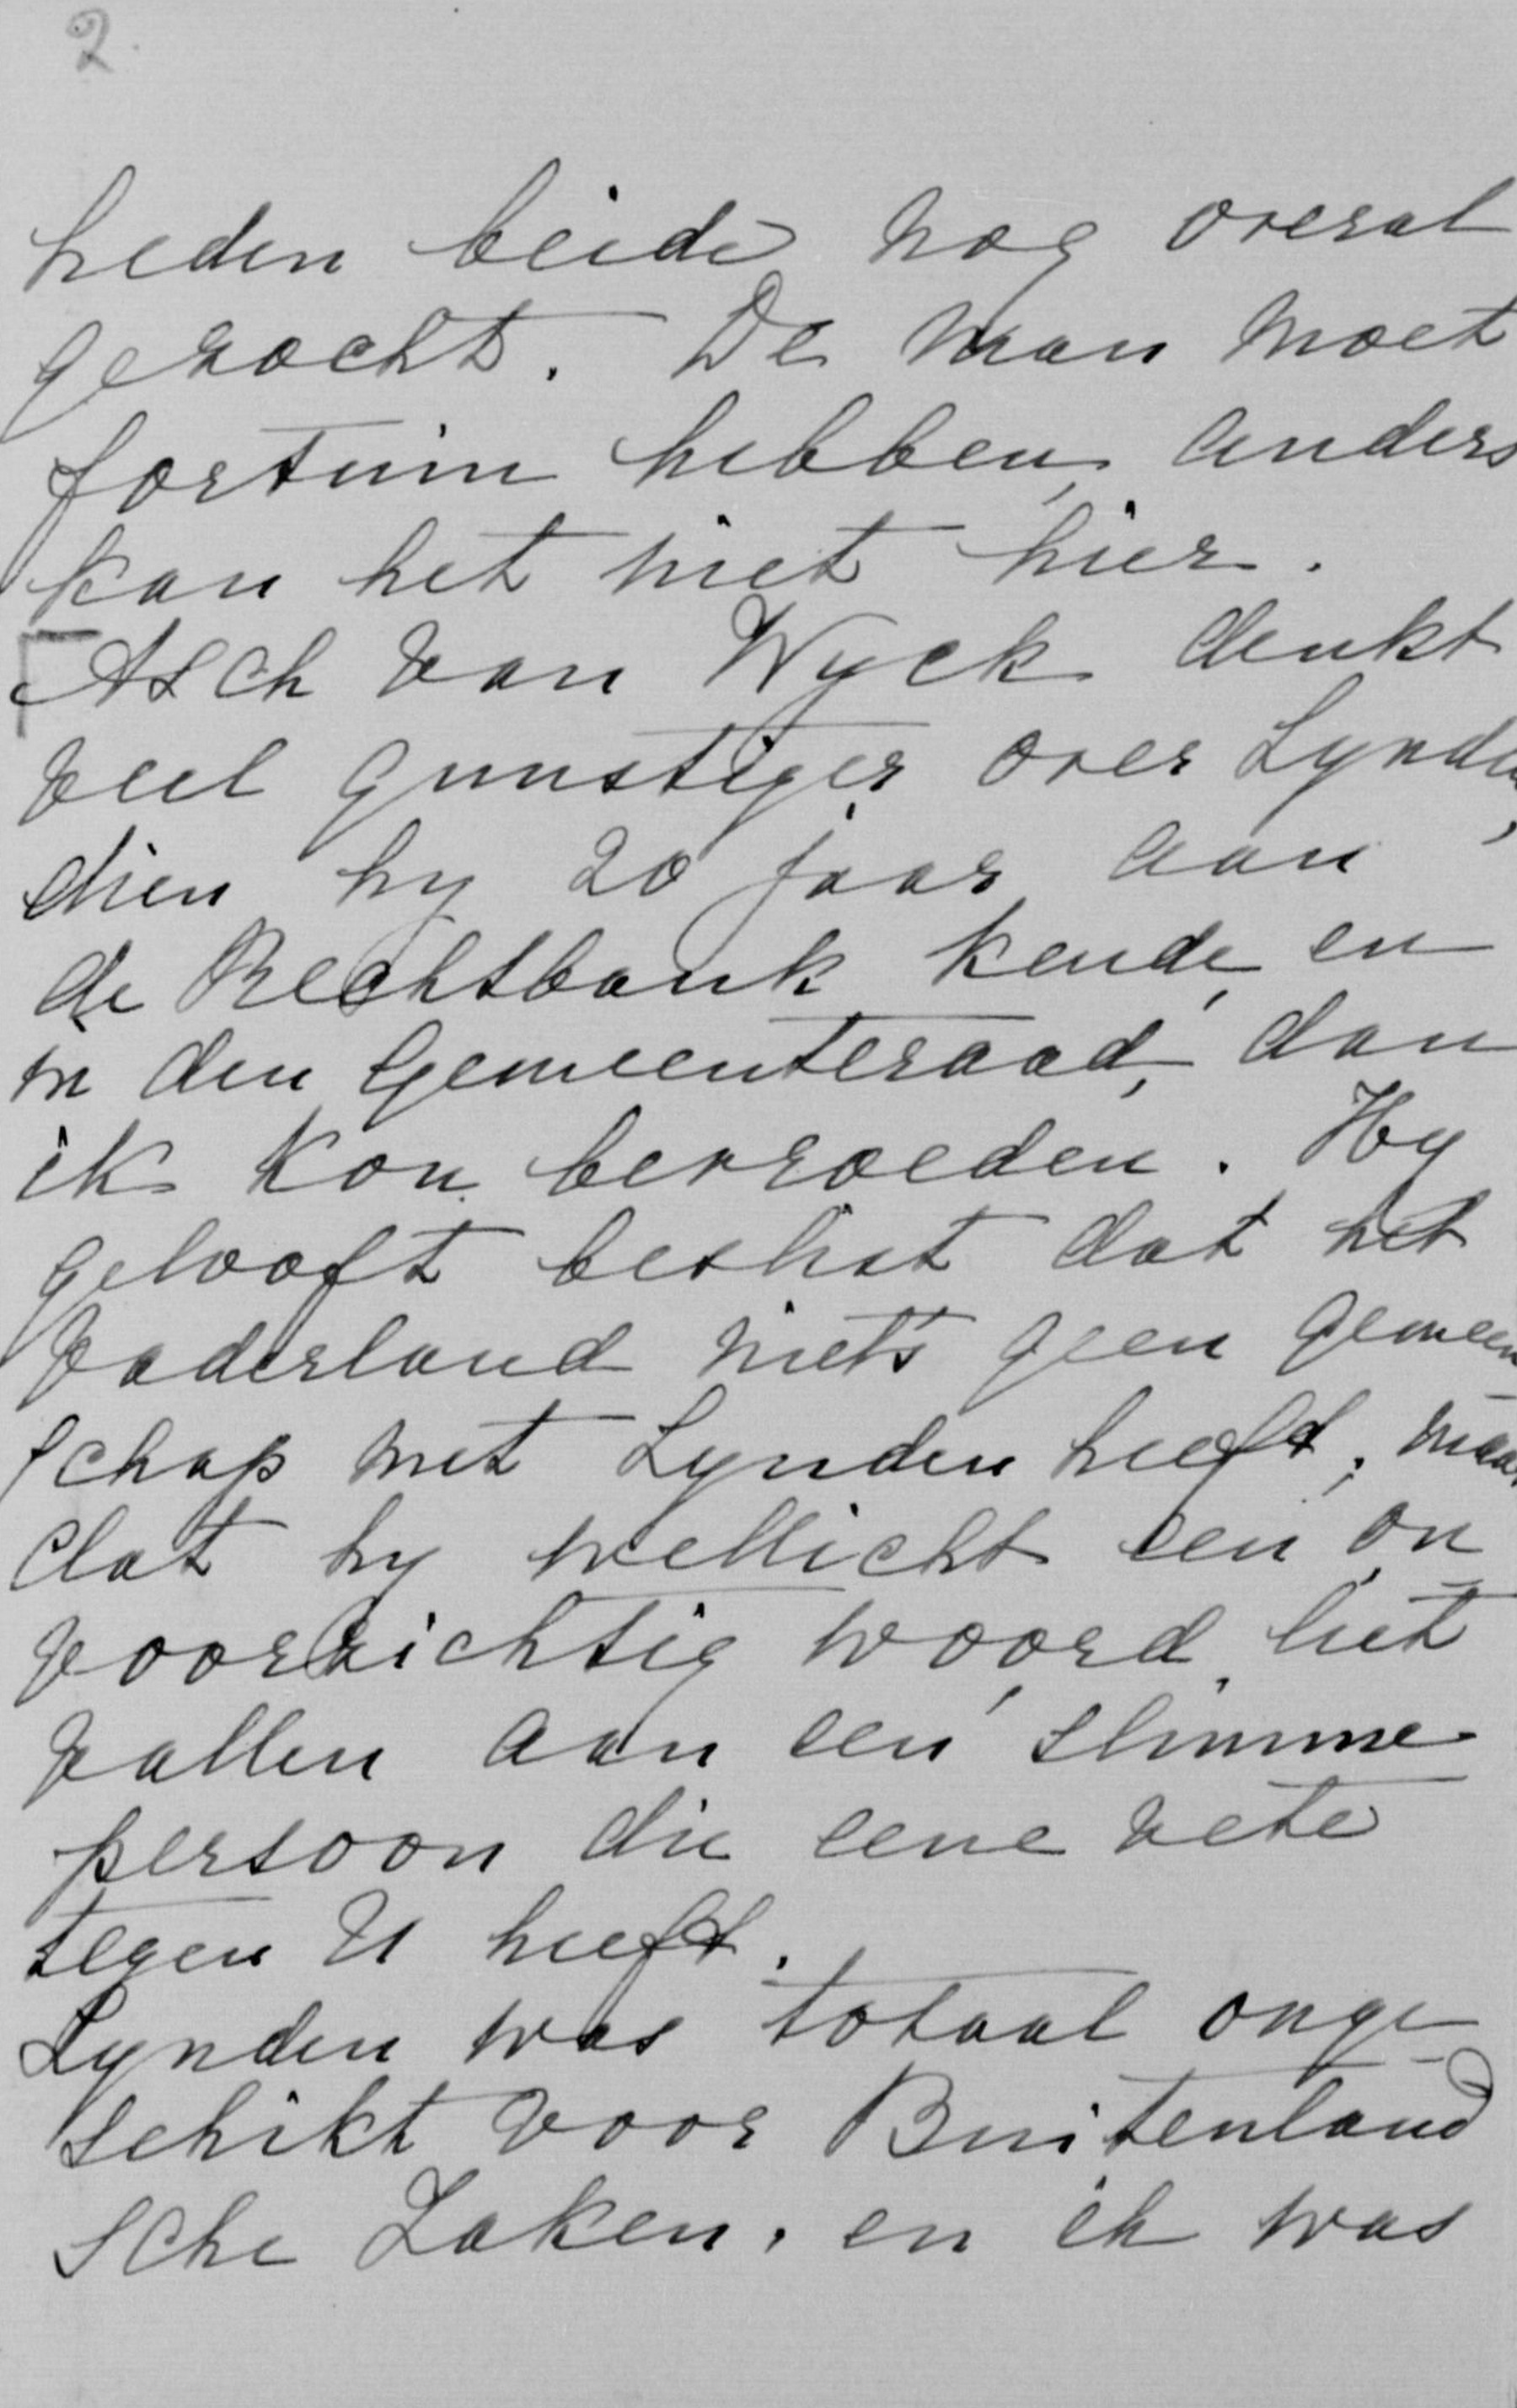 2.
heden beide nog overal
gezocht. De man moet
fortuin hebben, anders
kan het niet hier.
Asch van Wyck denkt
veel gunstiger over Lynden,
dien hy 20 jaar aan
de Rechtbank kende, en
in den Gemeenteraad, dan
ik kon bevroeden. Hy
gelooft beslist dat het
Vaderland niets geen gemeen
schap met Lynden heeft; maar
dat hy wellicht een on
voorzichtig woord, liet
vallen aan een slimme
persoon die eene vete
tegen U heeft.
Lynden was totaal onge-
schikt voor Buitenland
sche Zaken, en ik was